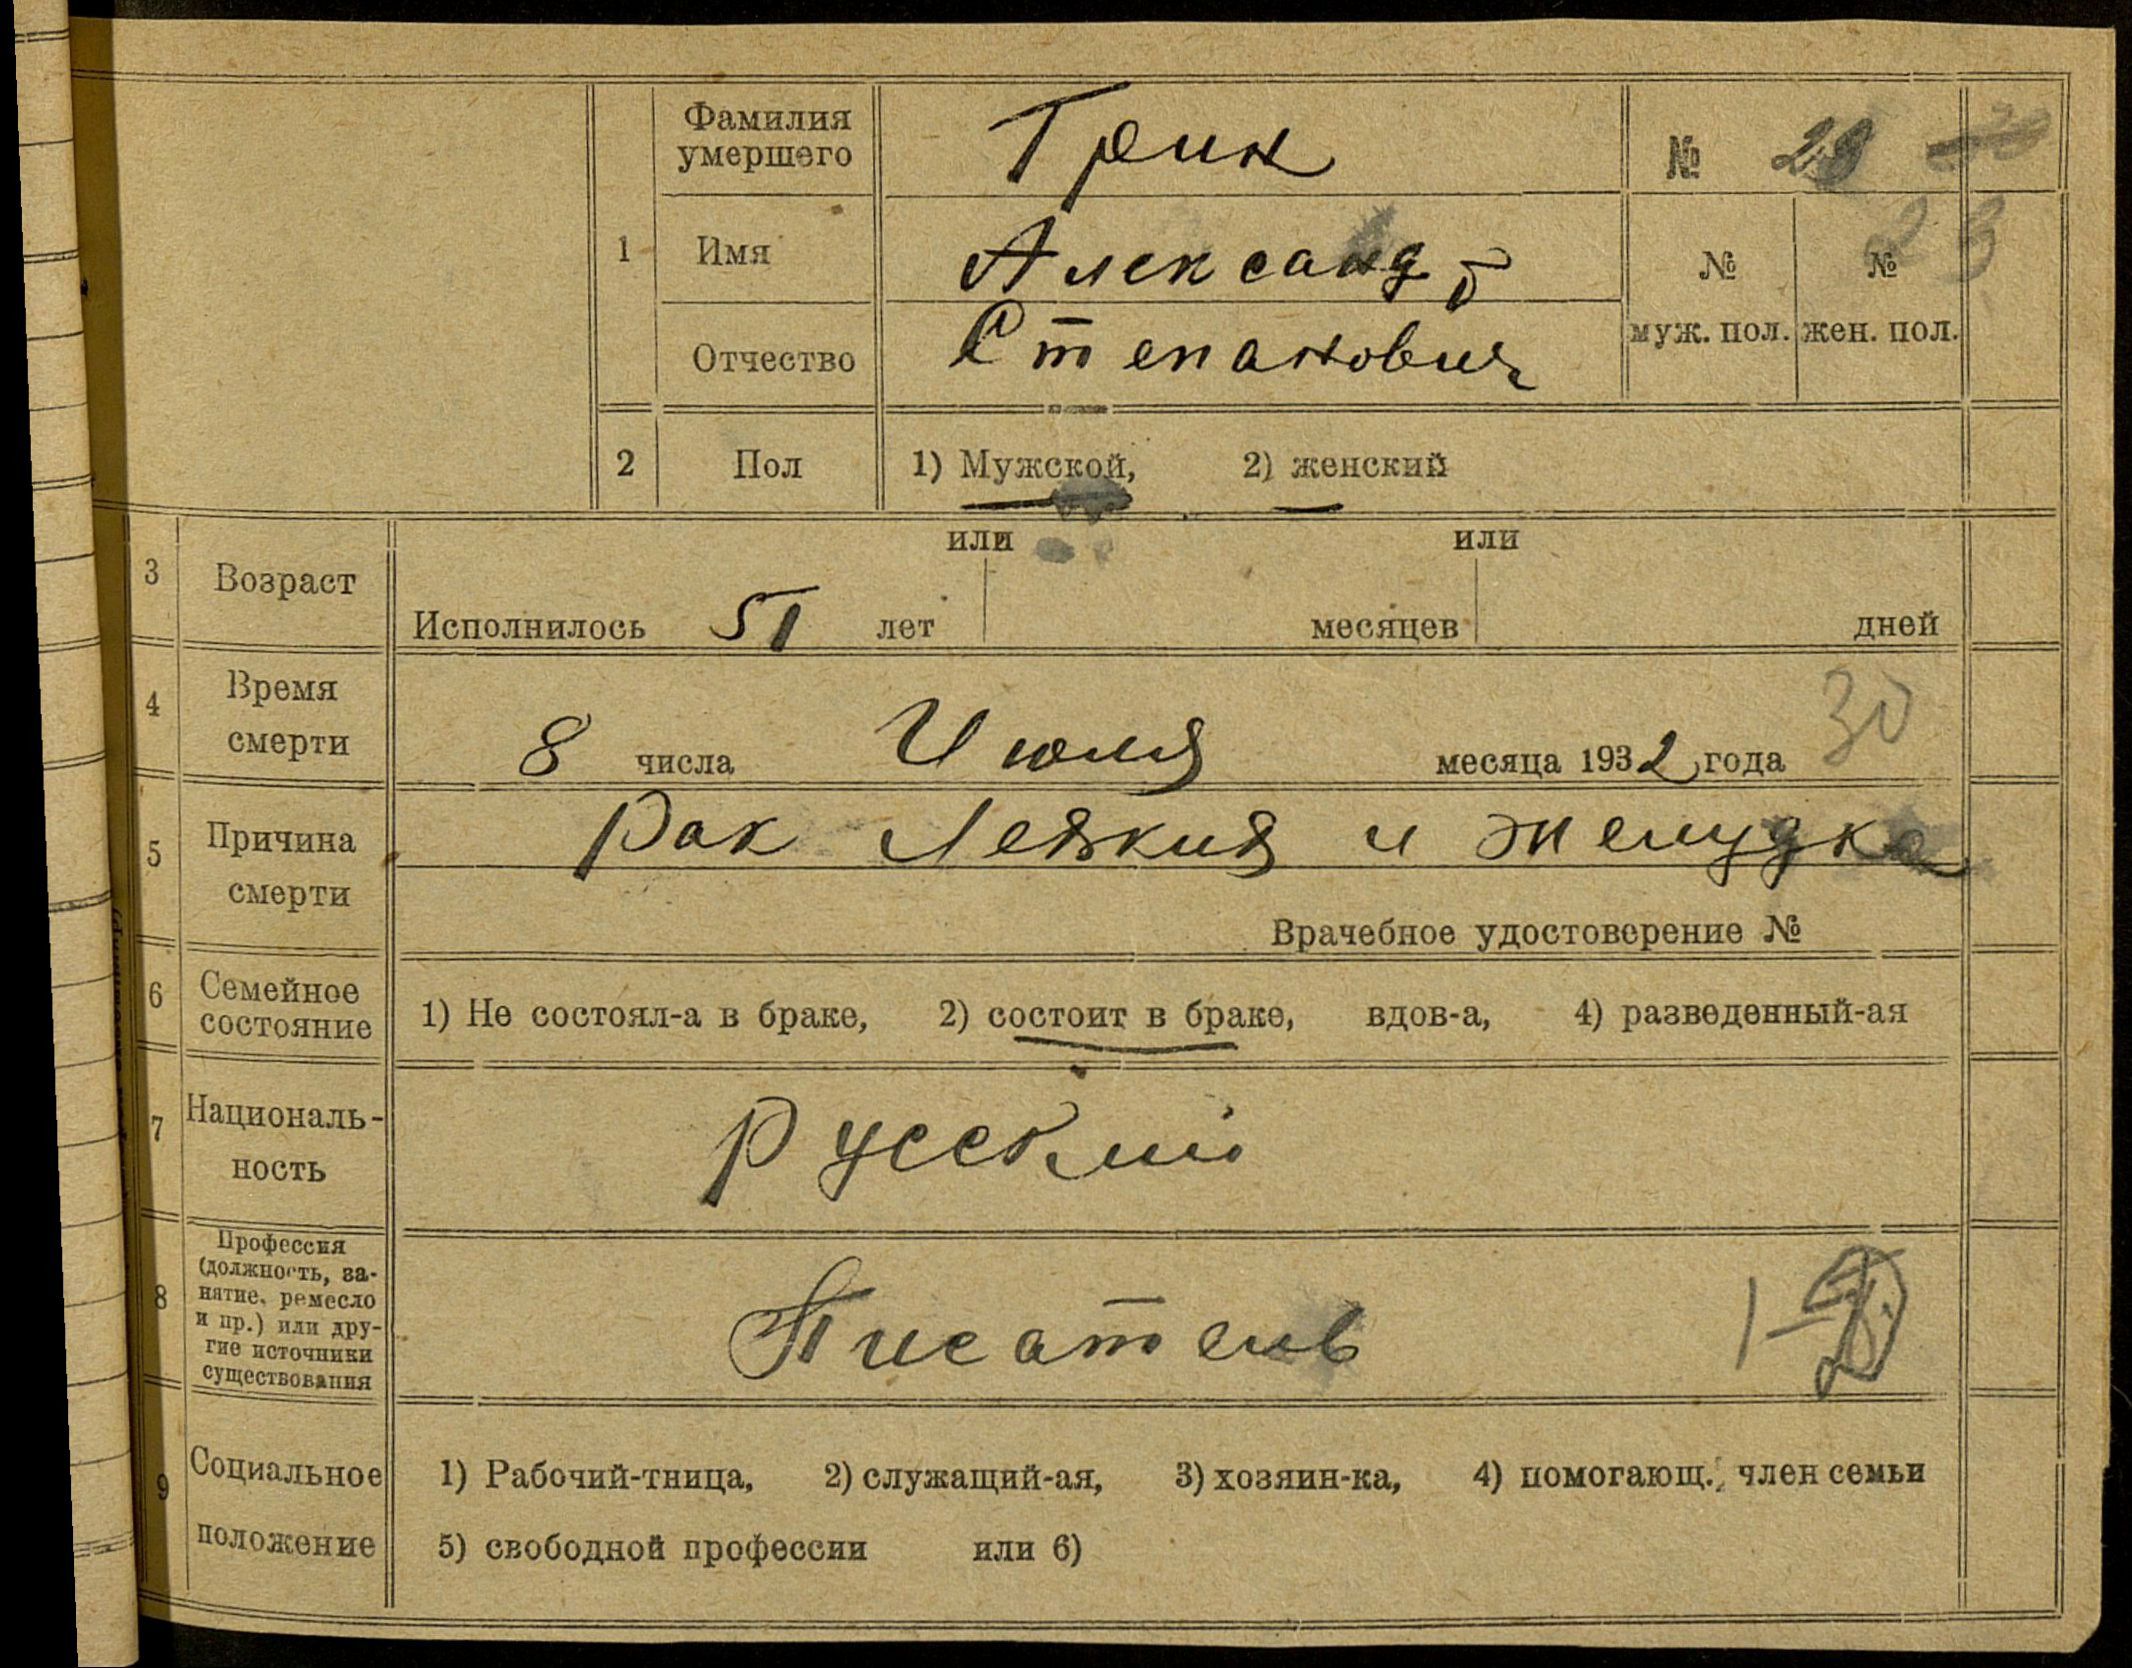 Фамилия умершего Грин № 28
1 Имя Александр № №
муж. пол. жен. пол.
Отчество Степанович
2 Пол 1) Мужской, 2) женский
3 Возраст Исполнилось 51 лет или месяцев или дней
4 Время смерти 8 числа Июля месяца 1932 года 30
5 Причина смерти Рак Легких и желудка
Врачебное удостоверение №
6 Семейное состояние 1) Не состоял-а в браке, 2) состоит в браке, вдов-а, 4) разведенный-ая
7 Националь-
ность Русский
8 Профессия
(должность, за-
нятие, ремесло
и пр.) или дру-
гие источники
существования
Писатель
9 Социальное положение 1) Рабочий-тница, 2) служащий-ая, 3) хозяин-ка, 4) помогающ. член семьи
5) свободной профессии или 6)